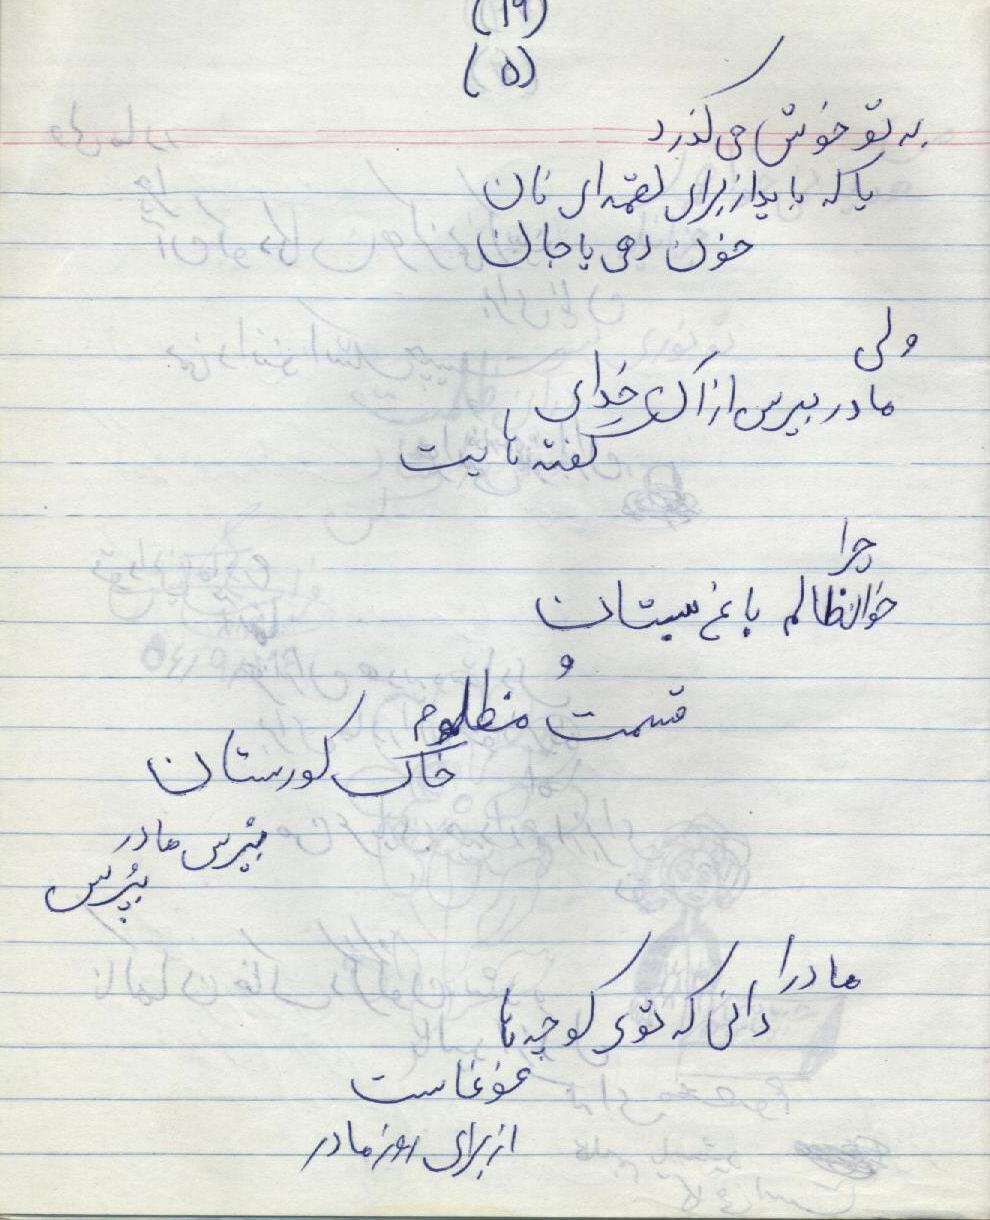 (۱۹)
(۵)
به تو خوش می گذرد
یا که باید از برای لقمه ای نان
خون دهی یا جان
ولی
مادر بپرس از آن خدای
گفته هایت
چرا
خوان ظالم باغ سبتان
و
قسمت مظلوم
خاک گورستان
بپرس مادر
بپُرس
مادر
دانی که توی کوچه ها
غوغاست
از برای روز مادر